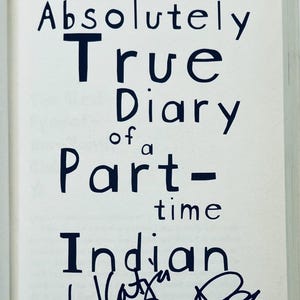 Absolutely
True
Diary
of
a
Part-
time
Indian